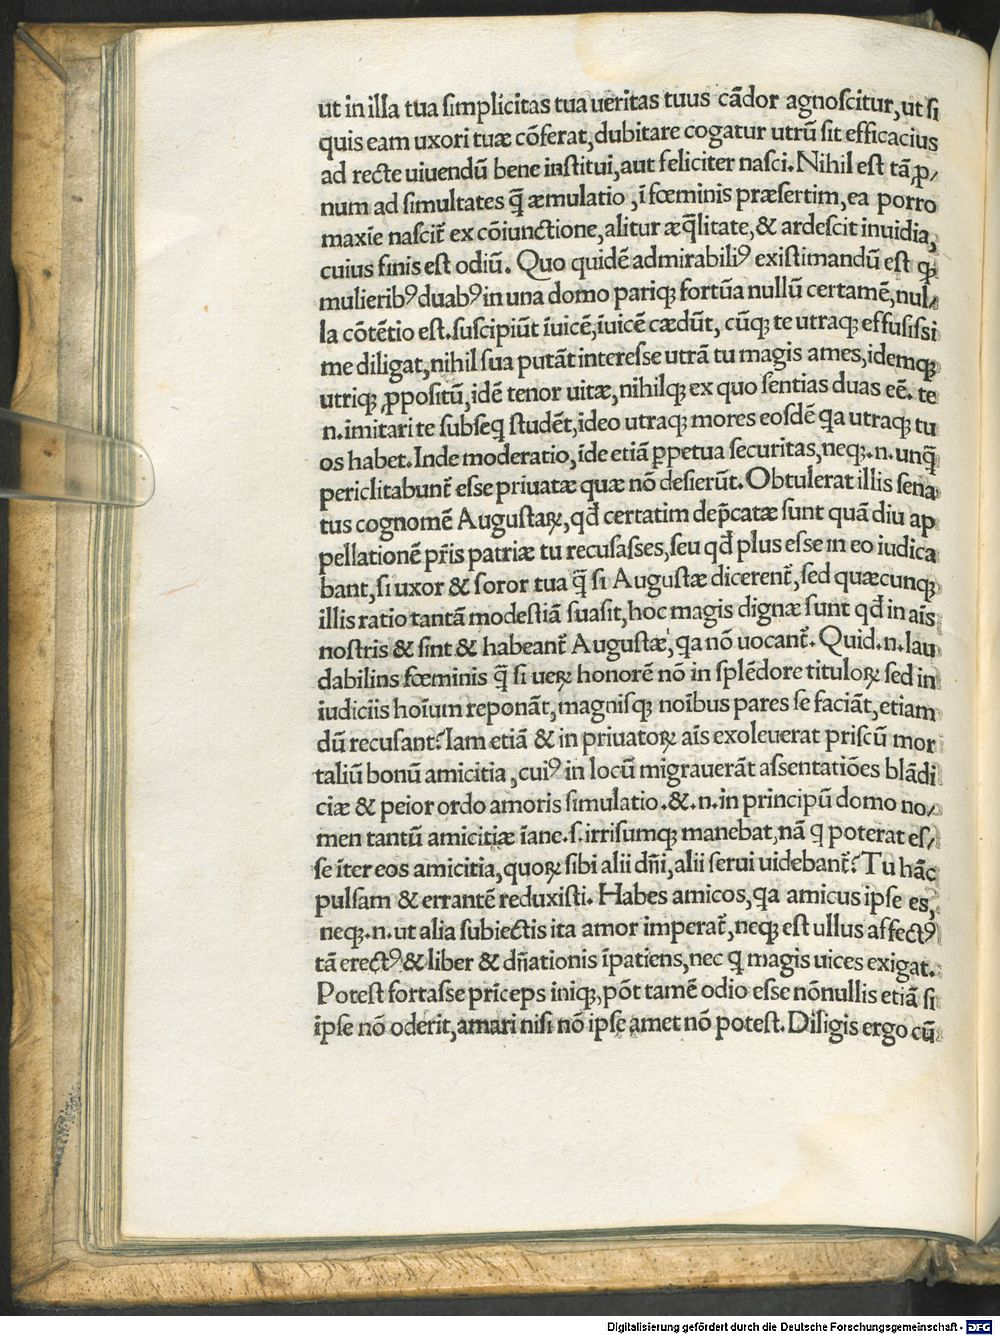 ut in illa tua ſimplicitas tua ueritas tuus cãdor agnoſcitur,ut ſi
quis eam uxori tuæ cõferat,dubitare cogatur utrũ ſit efficacius
ad recte uiuendũ bene inſtitui,aut feliciter naſci.Nihil eſt tã ꝓ/
num ad ſimultates q̃ æmulatio ,ĩ fœminis præſertim,ea porro
maxĩe naſcit̃ ex cõiunctione,alitur æq̃litate,& ardeſcit inuidia,
cuius finis eſt odiũ. Quo quidẽ admirabiliꝰ exiſtimandũ eſt ꝙ
mulieribꝰ duabꝰ in una domo pariqꝫ fortũa nullũ certamẽ,nul/
la cõtẽtio eſt.ſuſcipiũt ĩuicẽ,ĩuicẽ cædũt, cũqꝫ te utraqꝫ effuſiſſi
me diligat,nihil ſua putãt intereſſe utrã tu magis ames,idemqꝫ
utriqꝫ ꝓpoſitũ,idẽ tenor uitæ,nihilqꝫ ex quo ſentias duas eẽ. te
.n.imitari te ſubſeq ſtudẽt,ideo utraqꝫ mores eoſdẽ qa utraqꝫ tu
os habet.Inde moderatio,ĩde etiã ꝑpetua ſecuritas,neqꝫ.n.unq̃
periclitabunt̃ eſſe priuatæ quæ nõ deſierũt.Obtulerat illis ſena
tus cognomẽ Auguſtaꝝ,qđ certatim dep̃catæ ſunt quã diu ap
pellationẽ pr̃is patriæ tu recuſaſſes,ſeu qđ plus eſſe in eo iudica
bant,ſi uxor & ſoror tua q̃ ſi Auguſtæ dicerent̃,ſed quæcunqꝫ
illis ratio tantã modeſtiã ſuaſit,hoc magis dignæ ſunt qđ in aĩs
noſtris & ſint & habeant̃ Auguſtæ, qa nõ uocant̃. Quid.n.lau
dabilins fœminis q̃ ſi ueꝝ honorẽ nõ in ſplẽdore tituloꝝ ſed in
iudiciis hoĩum reponãt,magniſqꝫ noĩbus pares ſe faciãt,etiam
dũ recuſant?Iam etiã & in priuatoꝝ aĩs exoleuerat priſcũ mor
taliũ bonũ amicitia ,cuiꝰ in locũ migrauerãt aſſentatiões blãdi
ciæ & peior ordo amoris ſimulatio.&.n.in principũ domo no/
men tantũ amicitiæ ĩane.ſ.irriſumqꝫ manebat,nã q poterat eſ/
ſe ĩter eos amicitia,quoꝝ ſibi alii dñi,alii ſerui uidebant̃?Tu hãc
pulſam & errantẽ reduxiſti. Habes amicos,qa amicus ipſe es,
neqꝫ.n.ut alia ſubiectis ita amor imperat̃,neqꝫ eſt ullus affectꝰ
tã erectꝰ & liber & dñationis ĩpatiens,nec q magis uices exigat.
Poteſt fortaſſe prĩceps iniqꝫ,põt tamẽ odio eſſe nõnullis etiã ſi
ipſe nõ oderit,amari niſi nõ ipſe amet nõ poteſt.Diligis ergo cũ
Digitalisierung gefördert durch die Deutsche Forschungsgemeinschaft - DFG